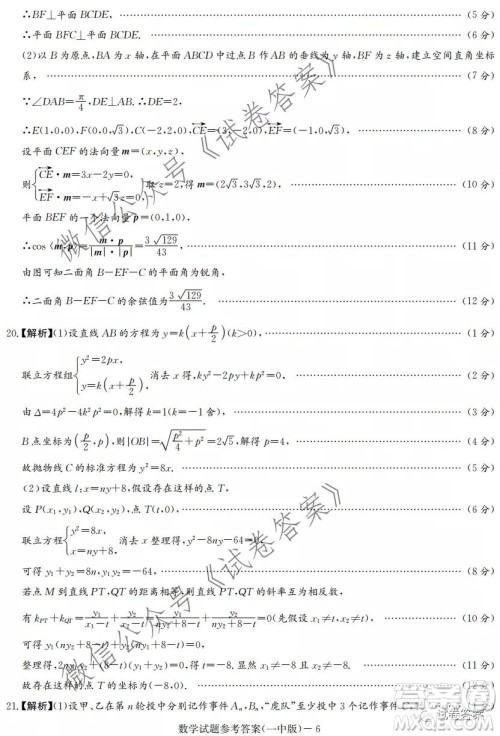 ∴BF⊥平面 BCDE. (5 分)
∴平面 BFC⊥平面 BCDE. (6 分)
(2)以 B 为原点,BA 为 x 轴,在平面 ABCD 中过点 B 作 AB 的垂线为 y 轴,BF 为 z 轴,建立空间直角坐标
系, (7 分)
∵∠DAB=π/4,DE⊥AB.∴DE=2,
∴E(1,0,0),F(0,0,√3),C(-2,2,0),CE=(3,-2,0),EF=(-1,0,√3). (8 分)
设平面 CEF 的法向量 m=(x,y,z),
则{CE·m=3x-2y=0, EF·m=-x+√3z=0, 取 z=2,得 m=(2√3,3√3,2), (10 分)
平面 BEF 的一个法向量 p=(0,1,0),
∴cos⟨m,p⟩=m·p/|m|·|p|=3√129/43. (11 分)
由图可知二面角 B-EF-C 的平面为锐角,
∴二面角 B-EF-C 的余弦值为3√129/43. (12 分)
20.【解析】(1)设直线 AB 的方程为 y=k(x+p/2)(k>0), (1 分)
联立方程组{y²=2px, y=k(x+p/2), 消去 x,得 ky²-2py+kp²=0, (2 分)
由 Δ=4p²-4k²p²=0,解得 k=1(k=-1 舍), (3 分)
B 点坐标为(p/2,p),则|OB|=√(p²/4+p²)=2√5,解得 p=4, (4 分)
故抛物线 C 的标准方程为 y²=8x. (5 分)
(2)设直线 l:x=ny+8,假设存在这样的点 T,
设 P(x₁,y₁),Q(x₂,y₂),点 T(t,0), (6 分)
联立{y²=8x, x=ny+8, 消去 x 整理得,y²-8ny-64=0,
可得 y₁+y₂=8n,y₁y₂=-64, (8 分)
若点 M 到直线 PT,QT 的距离相等,则直线 PT,QT 的斜率互为相反数,
有 kPT+kQT=y₁/(x₁-t)+y₂/(x₂-t)=y₁/(ny₁+8-t)+y₂/(ny₂+8-t)=0(先假设 x₁≠t,x₂≠t), (10 分)
整理得,2ny₁y₂+(8-t)(y₁+y₂)=0,可得 t=-8,经检验,此时 x₁≠-8,x₂≠-8. (11 分)
故存在这样的点 T(-8,0). (12 分)
21.【解析】(1)设甲、乙在第 n 轮投中分别记作事件 Aₙ,Bₙ,“虎队”至少投中 3 个记作事件 C,
数学试题参考答案(一中版)-6
微信公众号《试卷答案》
微信公众号《试卷答案》